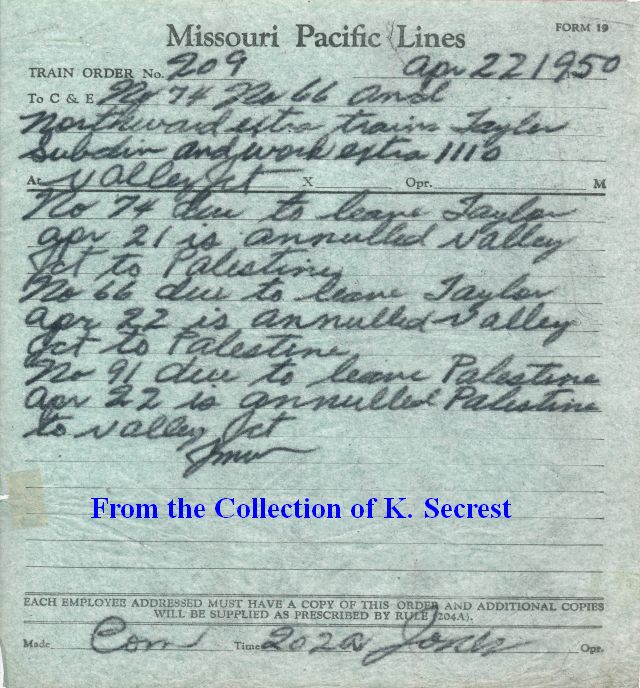 FORM 19
Missouri Pacific Lines
TRAIN ORDER No. 209 Apr 22 1950
To C & E No 74 No 66 and
Northward extra trains Taylor
Subdivn and work extra 1110
At Valley Jct X Opr. M
No 74 due to leave Taylor
Apr 21 is annulled Valley
Jct to Palestine
No 66 due to leave Taylor
Apr 22 is annulled Valley
Jct to Palestine
No 91 due to leave Palestine
Apr 22 is annulled Palestine
to Valley Jct
From the Collection of K. Secrest
EACH EMPLOYEE ADDRESSED MUST HAVE A COPY OF THIS ORDER AND ADDITIONAL COPIES
WILL BE SUPPLIED AS PRESCRIBED BY RULE (204A).
Made Com Time 202a Jones Opr.